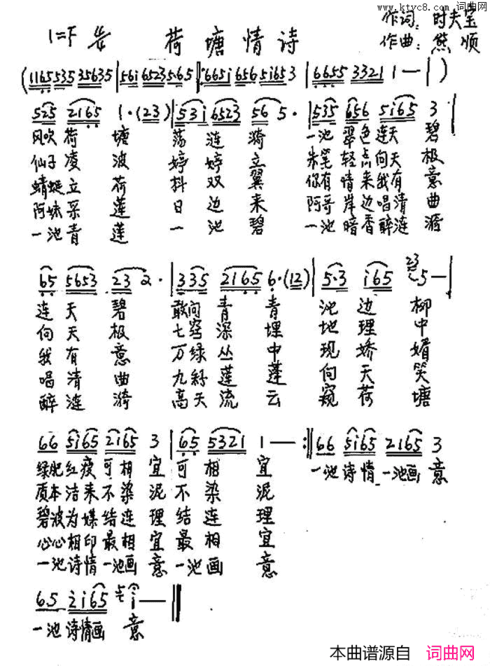 www.ktvc8.com 词曲网
1=F 荷塘情诗 作词：时夫宝
作曲：熊顺
(1165 535 35635 | 561 6523 565 | 665 656 56165 3 | 6655 3321 1 — )
525 2165 1·(23) | 531 6523 56 5· | 535 656 5165 3
风吹荷塘 荡涟漪 一池翠色连天碧
仙子凌波 婷婷立 朱笔轻点向天极
蜻蜓立荷 抖双翼 你有情来我有意
阿妹采莲 日边来 阿哥岸边唱清曲
一池青莲 一池碧 一池暗香醉涟漪
65 5653 23 2· | 335 2165 6·(12) | 5·3 165 5 — |
连天碧 敢问青青池边柳
向天极 七窍深埋地理中
我有意 万绿丛中现娇媚
唱清曲 九籽莲蓬向天笑
醉涟漪 高天流云窥荷塘
66 5165 2165 3 | 65 5321 1 — :‖ 66 5165 2165 3
绿肥红瘦可相宜 可相宜 一池诗情一池画意
质本洁来不染泥 不染泥
碧波为媒结连理 结连理
心心相印最相宜 最相宜
一池诗情一池画意 一池画意
65 2165 1 — ‖
一池诗情画意
本曲谱源自 词曲网